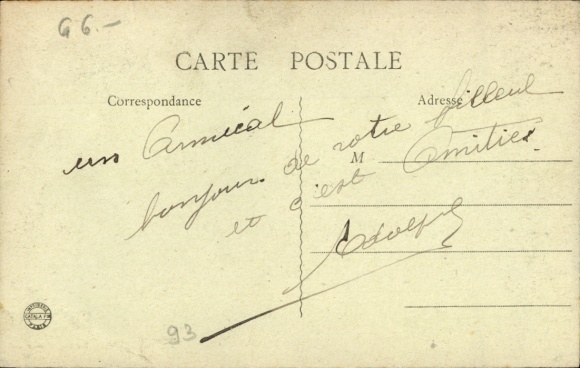 G6.-
CARTE POSTALE
Correspondance
Adresse
un Amical
bonjour de votre filleul
M
et c'est Amitiés.
Adolphe
93
PARIS